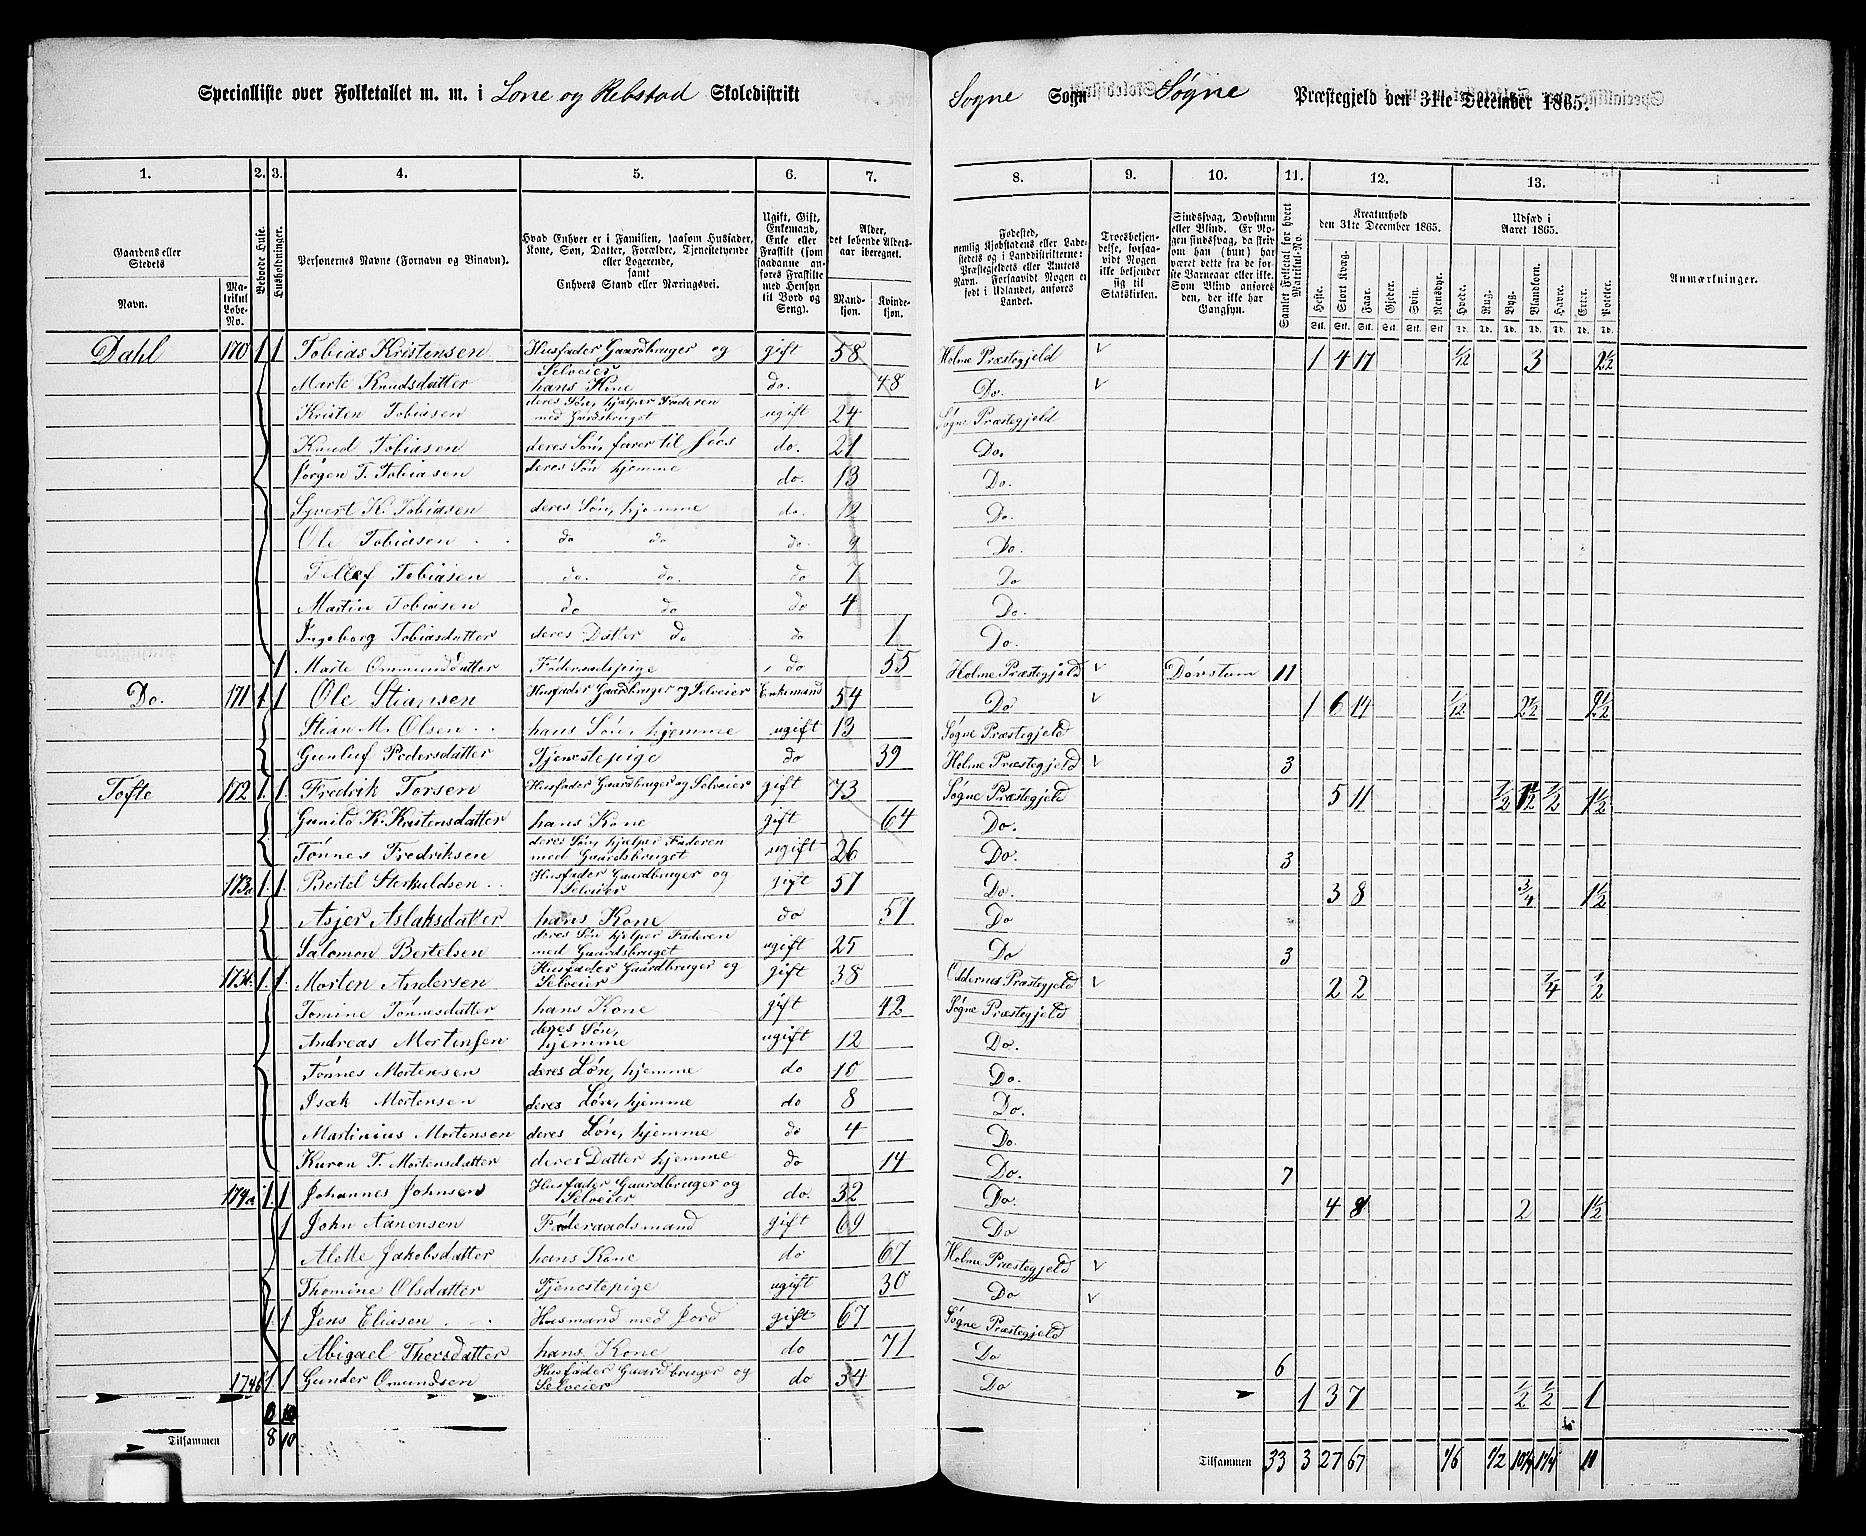 Specialliste over Folketallet m. m. i Lone og Rebstad Skoledistrikt Sogne Sogn Søgne Præstegjeld den 31te December 1865.
1. 2. 3. 4. 5. 6. 7. 8. 9. 10. 11. 12. 13.
Gaardens eller Stedets
Navn.
Matrikul Løbe-No.
Beboede Huse.
Husholdninger.
Personernes Navne (Fornavn og Binavn).
Hvad Enhver er i Familien, saasom Husfader, Kone, Søn, Datter, Forældre, Tjenestetyende eller Logerende, samt Enhvers Stand eller Næringsvei.
Ugift, Gift, Enkemand, Enke eller Fraskilt (som saadanne anføres Fraskilte med Hensyn til Bord og Seng).
Alder, det løbende Alders-aar iberegnet.
Mandkjøn. Kvindekjøn.
Fødested, nemlig Kjøbstadens eller Ladestedets og i Landdistrikterne: Præstegjeldets eller Amtets Navn. Forsaavidt Nogen er født i Udlandet, anføres Landet.
Troesbekjendelse, forsaavidt Nogen ikke bekjender sig til Statskirken.
Sindssvag, Døvstum eller Blind. Er Nogen sindssvag, da skrives om han (hun) har været dette fra de første Barneaar eller ikke. Som Blind anføres den, der ikke har Gangsyn.
Samlet Folketal for hvert Matrikul-No.
Kreaturhold den 31te December 1865.
Heste. Stort Kvæg. Faar. Gjeder. Svin. Rensdyr.
Udsæd i Aaret 1865.
Hvede. Rug. Byg. Blandkorn. Havre. Erter. Poteter.
Anmærkninger.
Dahl 170 1 1 Tobias Kristensen Husfader Gaardbruger og Selveier gift 58 Holme Præstegjeld 1 4 17 1/12 3 2 1/2
Marte Knudsdatter hans Kone do. 48 Do.
Kristen Tobiasen deres Søn, hjelper Faderen med Gaardsbruget ugift 24 Søgne Præstegjeld
Knud Tobiasen deres Søn, farer til søes do. 21 Do.
Jørgen T. Tobiasen deres Søn hjemme do. 13 Do.
Syvert K. Tobiasen deres Søn, hjemme do. 12 Do.
Ole Tobiasen do do do. 9 Do.
Tellef Tobiasen do. do. do 7 Do
Martin Tobiasen do do do 4 Do.
Ingeborg Tobiasdatter deres Datter do do 1 Do.
1 Marte Ommundsdatter Føderaadspige do 55 Holme Præstegjeld Døvstum 11
Do. 171 1 1 Ole Stiansen Husfader Gaardbruger og Selveier Enkemand 54 Do 1 6 14 1/12 2 1/2 2 1/2
Stian M. Olsen hans Søn, hjemme ugift 13 Søgne Præstegjeld
Gunluf Pedersdatter Tjenestepige do 39 Holme Præstegjeld 3
Tofte 172 1 1 Fredrik Torsen Husfader Gaardbruger og Selveier gift 73 Søgne Præstegjeld 5 11 1/2 1 1/2 1/2 1 1/2
Gunild K. Kristensdatter hans Kone gift 64 Do.
Tønnes Fredriksen deres Søn, hjelper Faderen med Gaardsbruget ugift 26 Do. 3
173a 1 1 Bertel Sterkuldsen Husfader Gaardbruger og Selveier gift 57 Do. 3 8 3/4 1 1/2
Asjer Aslaksdatter hans Kone do 57 Do
Salomon Bertelsen deres Søn hjelper Faderen med Gaardsbruget ugift 25 Do 3
173b 1 1 Morten Andersen Husfader Gaardbruger og Selveier gift 38 Oddernes Præstegjeld 2 2 1/4 1/2
Tomine Tønnesdatter hans Kone gift 42 Søgne Præstegjeld
Andreas Mortensen deres Søn, hjemme ugift 12 Do.
Tønnes Mortensen deres Søn, hjemme do 10 Do.
Isak Mortensen deres Søn, hjemme do 8 Do.
Martinius Mortensen deres Søn, hjemme do 4 Do.
Karen T. Mortensdatter deres Datter hjemme do 14 Do. 7
174a 1 1 Johannes Johnsen Husfader Gaardbruger og Selveier do. 32 Do. 4 8 2 1 1/2
1 John Aanensen Føderaadsmand gift 69 Do
Alette Jakobsdatter hans Kone do 67 Holme Præstegjeld
Thomine Olsdatter Tjenestepige ugift 30 Do
1 1 Jens Eliasen Husmand med Jord gift 67 Søgne Præstegjeld
Abigael Thorsdatter hans Kone do 71 Do 6
174b 1 1 Gunder Omundsen Husfader Gaardbruger og Selveier do 34 Do 1 3 7 1/2 1/2 1
Tilsammen 8 10 Tilsammen 33 3 27 67 1/6 1/2 10 1/4 1 3/4 11